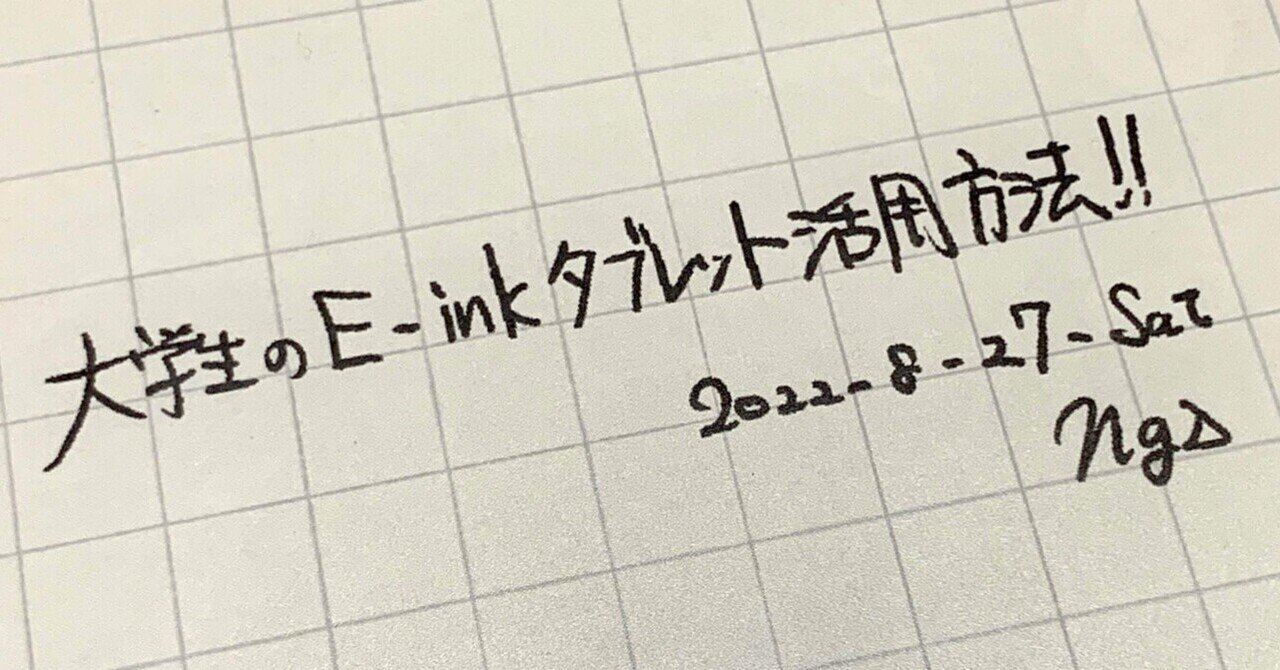 大学生のE-inkタブレット活用方法!!
2022-8-27-Sat
ngΔ